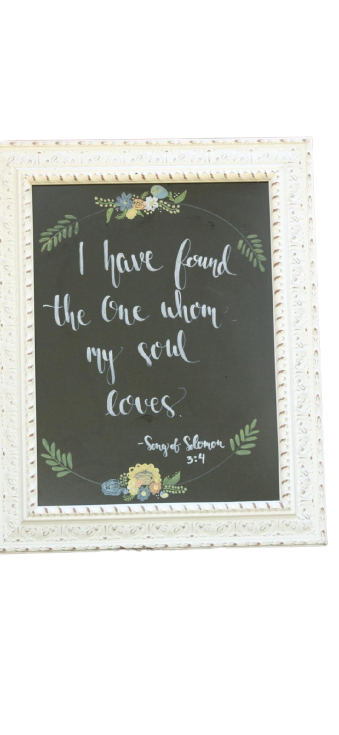 I have found
the One whom
my soul
loves.
-Song of Solomon
3:4